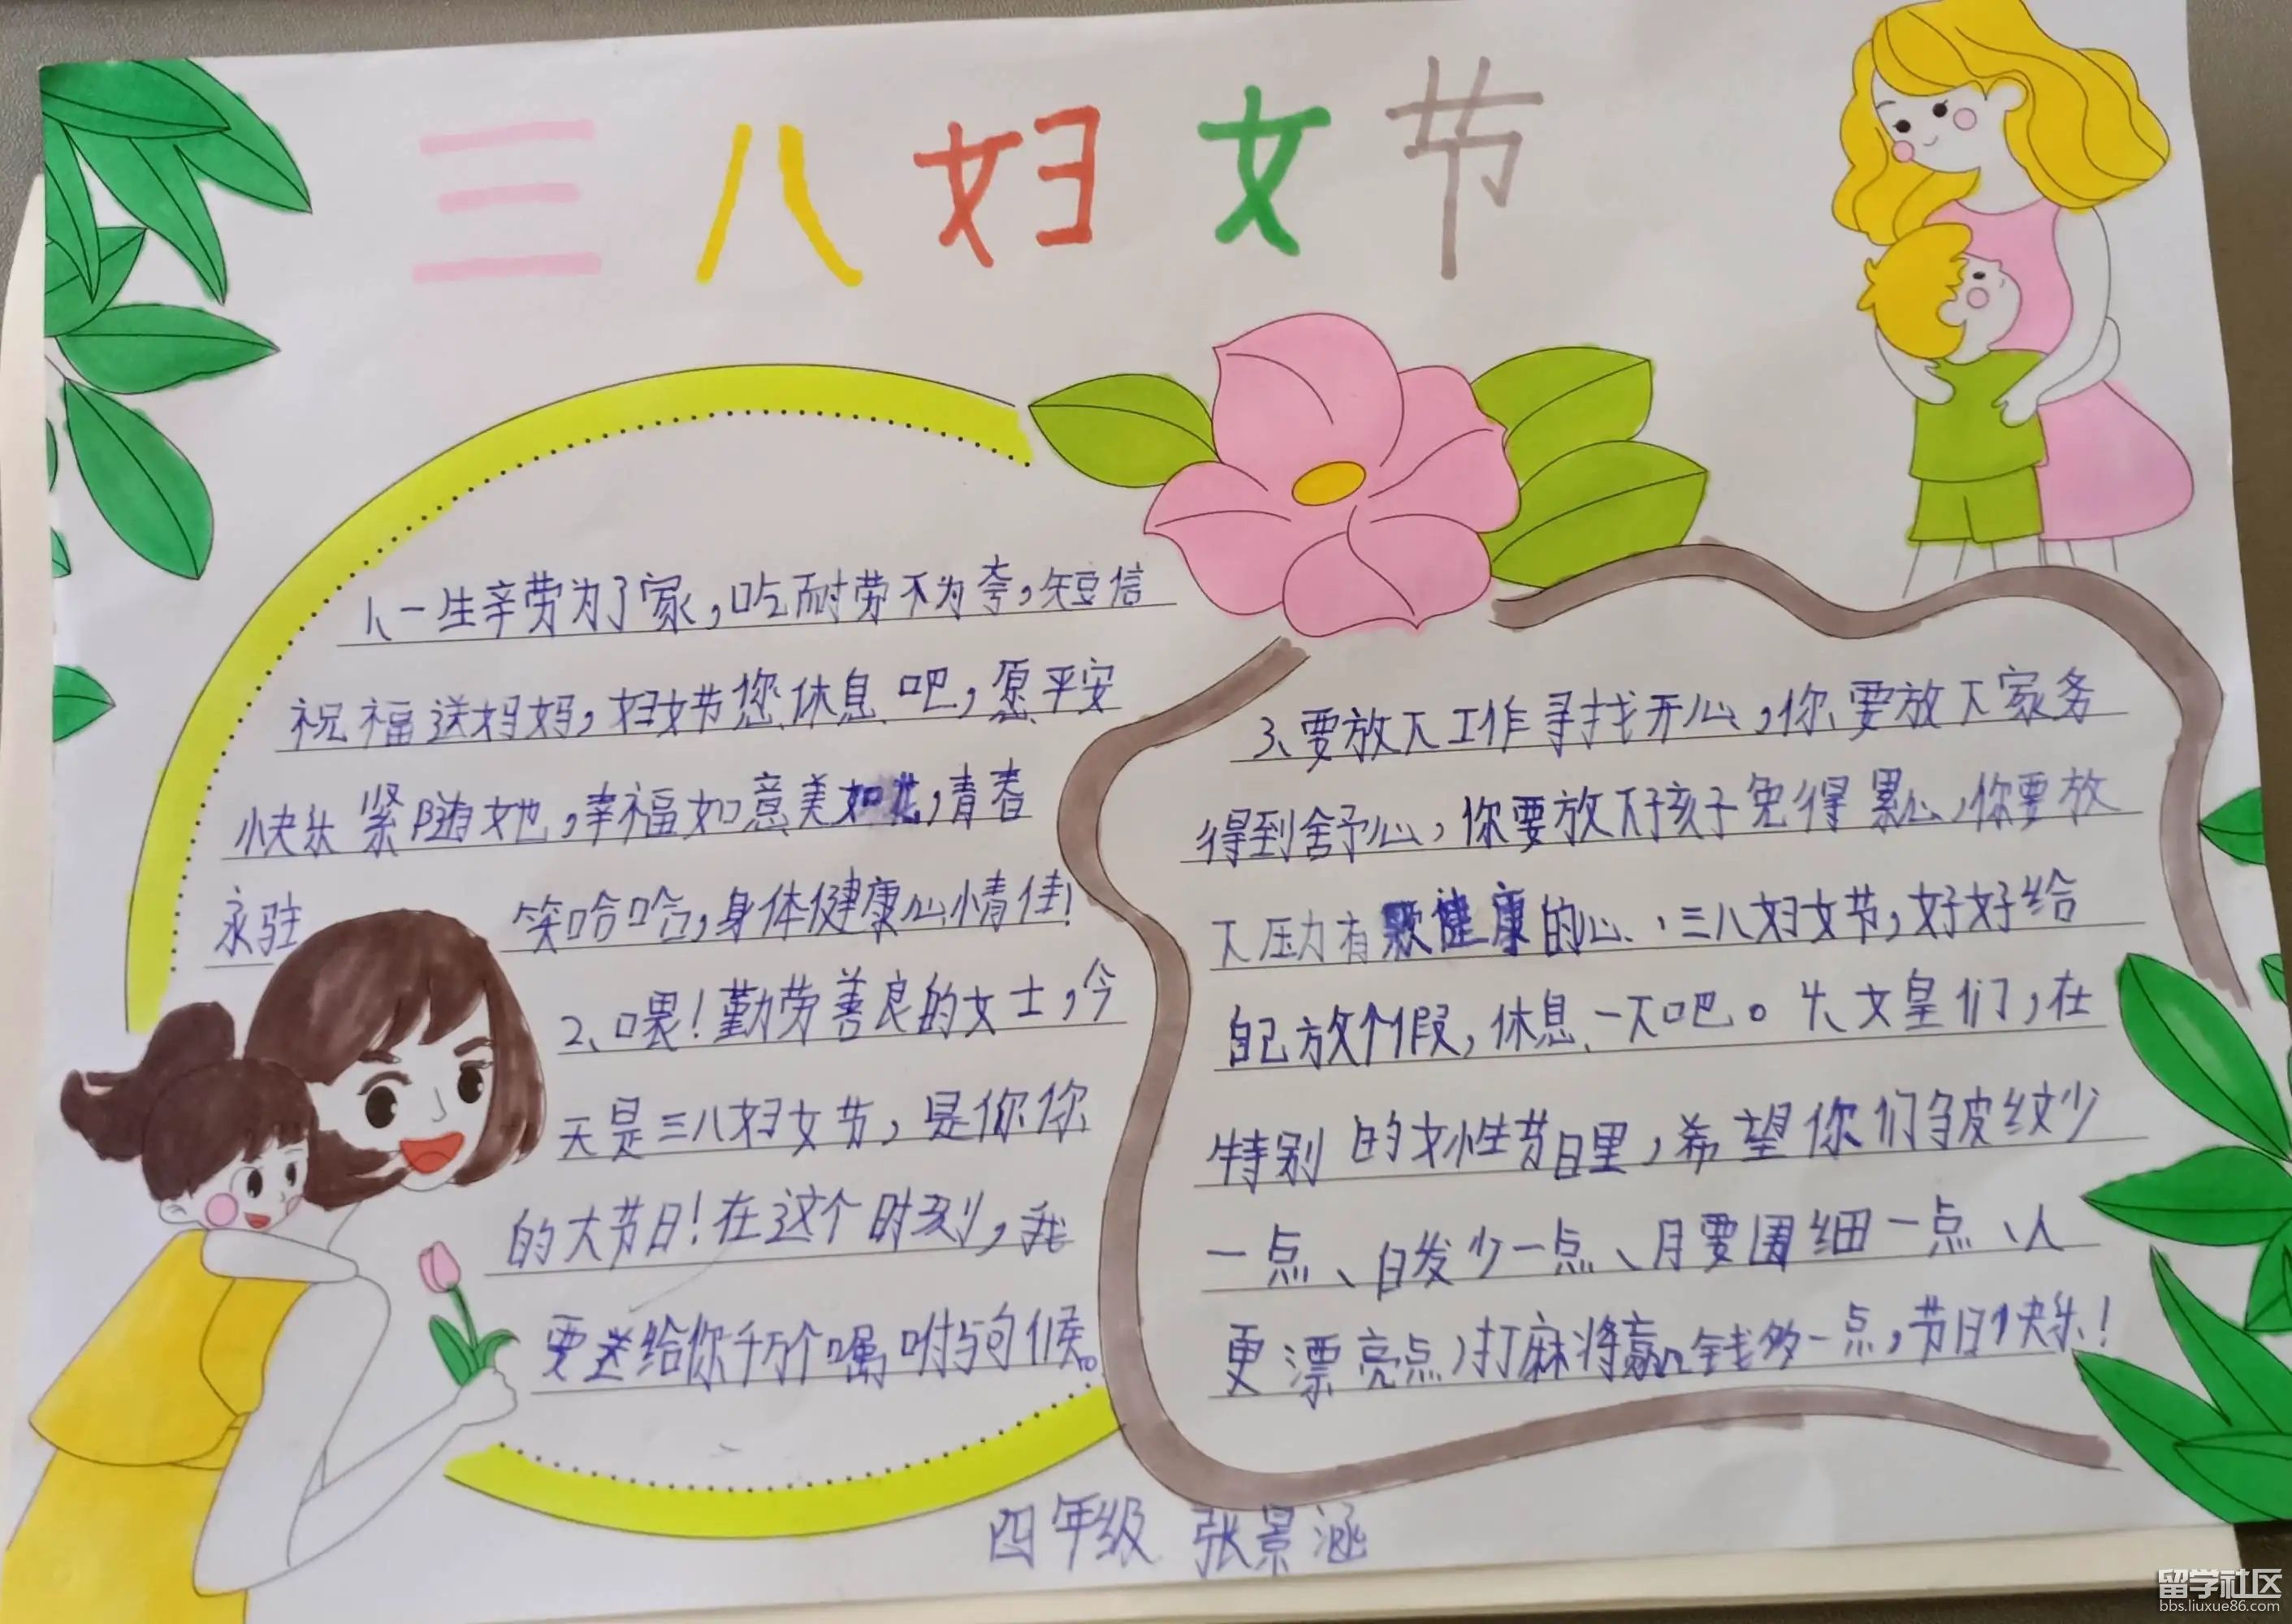 三八妇女节
1、一生辛劳为了家，吃耐劳不为夸，短信
祝福送妈妈，妇女节您休息吧，愿平安
快乐紧随她，幸福如意美如花，青春
永驻 笑哈哈，身体健康心情佳！
2、喂！勤劳善良的女士，今
天是三八妇女节，是你你
的大节日！在这个时刻，我
要送给你千万个嘱咐与句候。
3、要放下工作寻找开心，你要放下家务
得到舒心，你要放下孩子免得累心，你要放
下压力有颗健康的心、三八妇女节，好好给
自己放个假，休息一下吧。 女皇们，在
特别的女性节日里，希望你们皱纹少
一点、白发少一点、月要围细一点、人
更漂亮点，打麻将赢钱多一点，节日快乐！
四年级 张景涵
留学社区
bbs.liuxue86.com